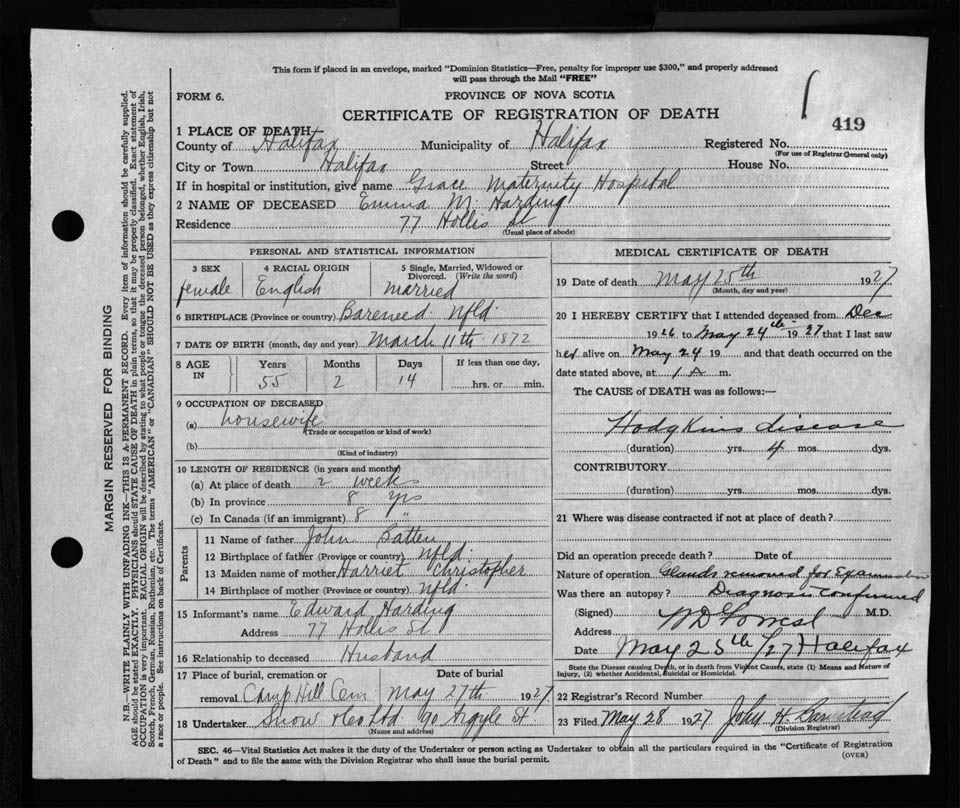 This form if placed in an envelope, marked "Dominion Statistics—Free, penalty for improper use $300," and properly addressed
will pass through the Mail "FREE"
FORM 6.
PROVINCE OF NOVA SCOTIA
CERTIFICATE OF REGISTRATION OF DEATH
419
1 PLACE OF DEATH—
County of Halifax Municipality of Halifax Registered No.
(For use of Registrar General only)
City or Town Halifax Street House No.
If in hospital or institution, give name Grace Maternity Hospital
2 NAME OF DECEASED Emma M. Harding
Residence 77 Hollis St
(Usual place of abode)
PERSONAL AND STATISTICAL INFORMATION
3 SEX 4 RACIAL ORIGIN 5 Single, Married, Widowed or
Divorced. (Write the word)
female English married
6 BIRTHPLACE (Province or country) Bareneed Nfld.
7 DATE OF BIRTH (month, day and year) March 11th 1872
8 AGE IN Years Months Days If less than one day,
55 2 14 hrs. or min.
9 OCCUPATION OF DECEASED
(a) housewife
(Trade or occupation or kind of work)
(b)
(Kind of industry)
10 LENGTH OF RESIDENCE (in years and months)
(a) At place of death 2 weeks
(b) In province 8 yrs
(c) In Canada (if an immigrant) 8 "
Parents
11 Name of father John Batten
12 Birthplace of father (Province or country) Nfld.
13 Maiden name of mother Harriet Christopher
14 Birthplace of mother (Province or country) Nfld.
15 Informant's name Edward Harding
Address 77 Hollis St
16 Relationship to deceased Husband
17 Place of burial, cremation or Date of burial
removal Camp Hill Cem May 27th 1927
18 Undertaker Snow & Co Ltd 90 Argyle St.
(Name and address)
MEDICAL CERTIFICATE OF DEATH
19 Date of death May 25th 1927
(Month, day and year)
20 I HEREBY CERTIFY that I attended deceased from Dec
1926 to May 24th 1927 that I last saw
her alive on May 24 19 and that death occurred on the
date stated above, at 1 A m.
The CAUSE of DEATH was as follows:—
Hodgkins disease
(duration) yrs. 4 mos. dys.
CONTRIBUTORY
(duration) yrs. mos. dys.
21 Where was disease contracted if not at place of death?
Did an operation precede death? Date of
Nature of operation Glands removed for examination
Was there an autopsy? Diagnosis confirmed
(Signed) M.D.
Address
Date May 25th /27 Halifax
State the Disease causing Death, or in death from Violent Causes, state (1) Means and Nature of
Injury, (2) whether Accidental, Suicidal or Homicidal.
22 Registrar's Record Number
23 Filed May 28 1927 John H.
(Division Registrar)
SEC. 46—Vital Statistics Act makes it the duty of the Undertaker or person acting as Undertaker to obtain all the particulars required in the "Certificate of Registration
of Death" and to file the same with the Division Registrar who shall issue the burial permit.
(OVER)
MARGIN RESERVED FOR BINDING
N.B.—WRITE PLAINLY WITH UNFADING INK—THIS IS A PERMANENT RECORD. Every item of information should be carefully supplied.
AGE should be stated EXACTLY. PHYSICIANS should STATE CAUSE OF DEATH in plain terms, so that it may be properly classified. Exact statement of
OCCUPATION is very important. RACIAL ORIGIN will be described by stating to what people or tongue the deceased person belonged, whether English, Irish,
Scotch, French, German, Russian, Ruthenian, etc. The terms "AMERICAN" or "CANADIAN" SHOULD NOT BE USED as they express citizenship but not
a race or people. See instructions on back of Certificate.